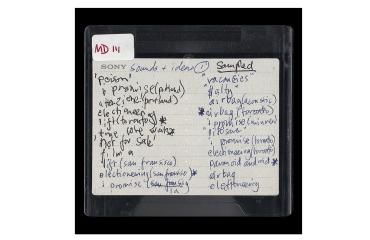 MD 111
SONY
sounds + ideas ①
Sampled
"poison"
i promise (portland)
attention (portland)
electioneering
lift (toronto) *
true love waits *
not for sale
I'm a
lift (san fransisco)
electioneering (san fransisco) *
i promise (san fransis
LA)
"vacancies"
airbag (acoustic)
* airbag (toronto)
i promise
lifesaver
i promise (toronto)
electioneering (toronto)
paranoid android *
airbag
electioneering